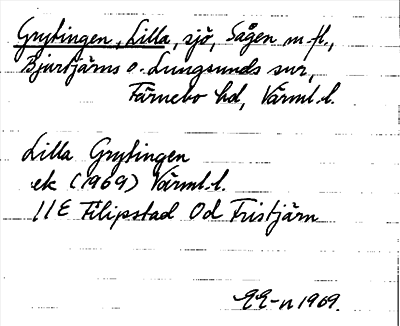 Grytingen, Lilla, sjö, Sågen m fl.,
Bjurtjärns o. Lungsunds snr,
Färnebo hd, Värml. l.
Lilla Grytingen
ek (1969) Värml. l.
11E Filipstad 0d Tristjärn
1969.